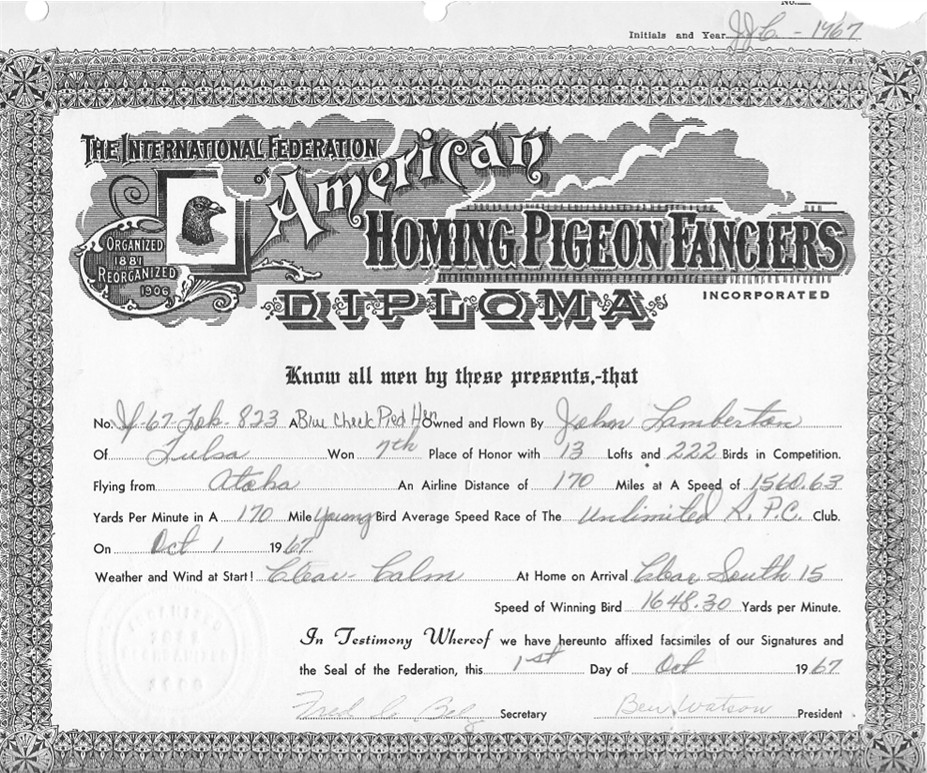 Initials and Year JJC - 1967
THE INTERNATIONAL FEDERATION
OF AMERICAN
HOMING PIGEON FANCIERS
ORGANIZED
1881
REORGANIZED
1906
INCORPORATED
DIPLOMA
Know all men by these presents,-that
No. 67- 823 A Blue Check Pied Hen Owned and Flown By John Lamberton
Of Tulsa Won 7th Place of Honor with 13 Lofts and 222 Birds in Competition.
Flying from Atoka An Airline Distance of 170 Miles at A Speed of 1560.63
Yards Per Minute in A 170 Mile Young Bird Average Speed Race of The Unlimited R.P.C. Club.
On Oct 1 1967
Weather and Wind at Start! Clear - Calm At Home on Arrival Clear South 15
Speed of Winning Bird 1648.30 Yards per Minute.
In Testimony Whereof we have hereunto affixed facsimiles of our Signatures and
the Seal of the Federation, this 1st Day of Oct 1967
Fred Secretary Ben Watson President